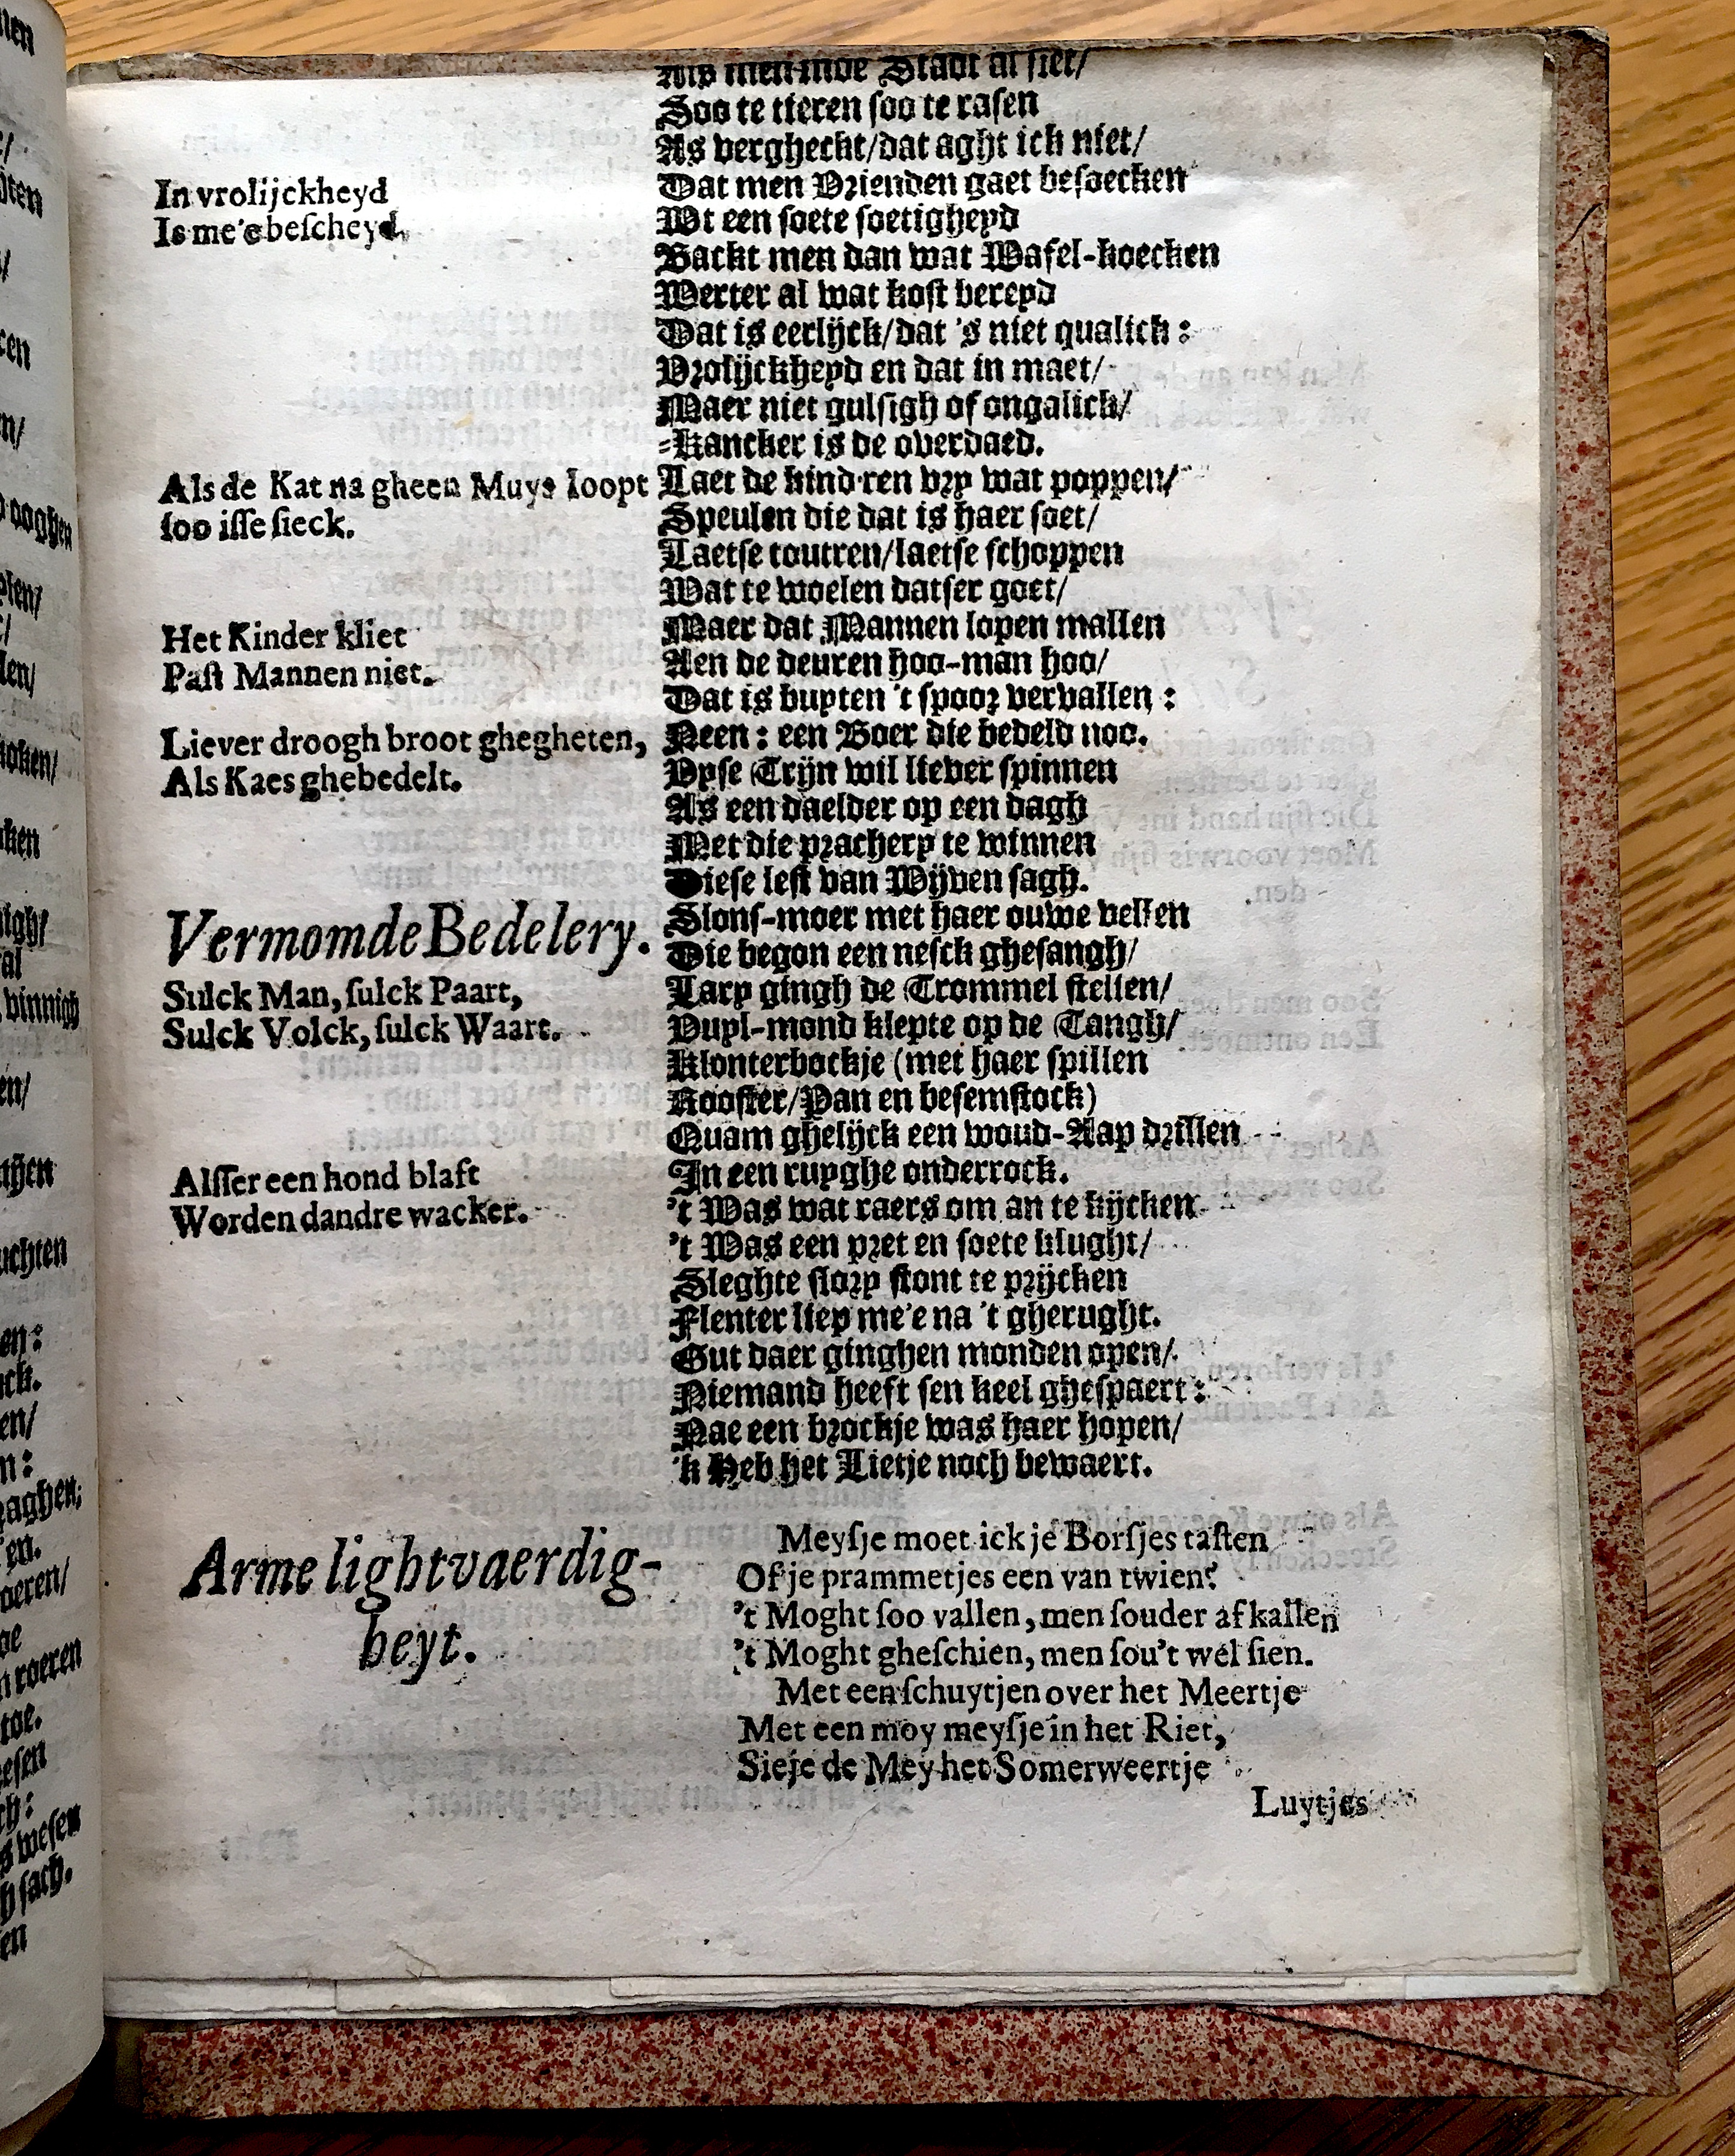 Als men inde Stadt al siet/
Soo te tieren soo te rasen
As vergheckt/dat aght ick niet/
In vrolijckheyd
Is me'e bescheyd.
Dat men Vrienden gaet besoecken
Wt een soete soetigheyd
Backt men dan wat Wafel-koecken
Werter al wat kost bereyd
Dat is eerlijck/dat 's niet qualick:
Vrolijckheyd en dat in maet/
Maer niet gulsigh of ongalick/
-Kancker is de overdaed.
Als de Kat na gheen Muys loopt
soo isse sieck.
Laet de kind'ren vry wat poppen/
Speulen die dat is haer soet/
Laetse toutren/laetse schoppen
Wat te woelen datser goet/
Het Kinder kliet
Past Mannen niet.
Maer dat Mannen lopen mallen
Aen de deuren hoo-man hoo/
Dat is buyten 't spoor vervallen:
Liever droogh broot ghegheten,
Als Kaes ghebedelt.
Neen: een Boer die bedeld noo.
Dyse Trijn wil liever spinnen
As een daelder op een dagh
Met die prachery te winnen
Diese lest van Wijven sagh.
Vermomde Bedelery.
Slons-moer met haer ouwe vellen
Die begon een nesck ghesangh/
Sulck Man, sulck Paart,
Sulck Volck, sulck Waart.
Lary gingh de Trommel stellen/
Vuyl-mond klepte op de Tangh/
Klonterbockje (met haer spillen
Rooster/Pan en besemstock)
Quam ghelijck een woud-Aap drillen
In een ruyghe onderrock.
Alsser een hond blaft
Worden dandre wacker.
't Was wat raers om an te kijcken
't Was een pret en soete klught/
Sleghte slory stont te prijcken
Flenter liep me'e na 't gherught.
Gut daer ginghen monden open/
Niemand heeft sen keel ghespaert:
Nae een brockje was haer hopen/
'k Heb het Lietje noch bewaert.
Arme lightvaerdig-
heyt.
Meysje moet ick je Borsjes tasten
Of je prammetjes een van twien?
't Moght soo vallen, men souder af kallen
't Moght gheschien, men sou't wel sien.
Met een schuytjen over het Meertje
Met een moy meysje in het Riet,
Sieje de Mey het Somerweertje
Luytjes